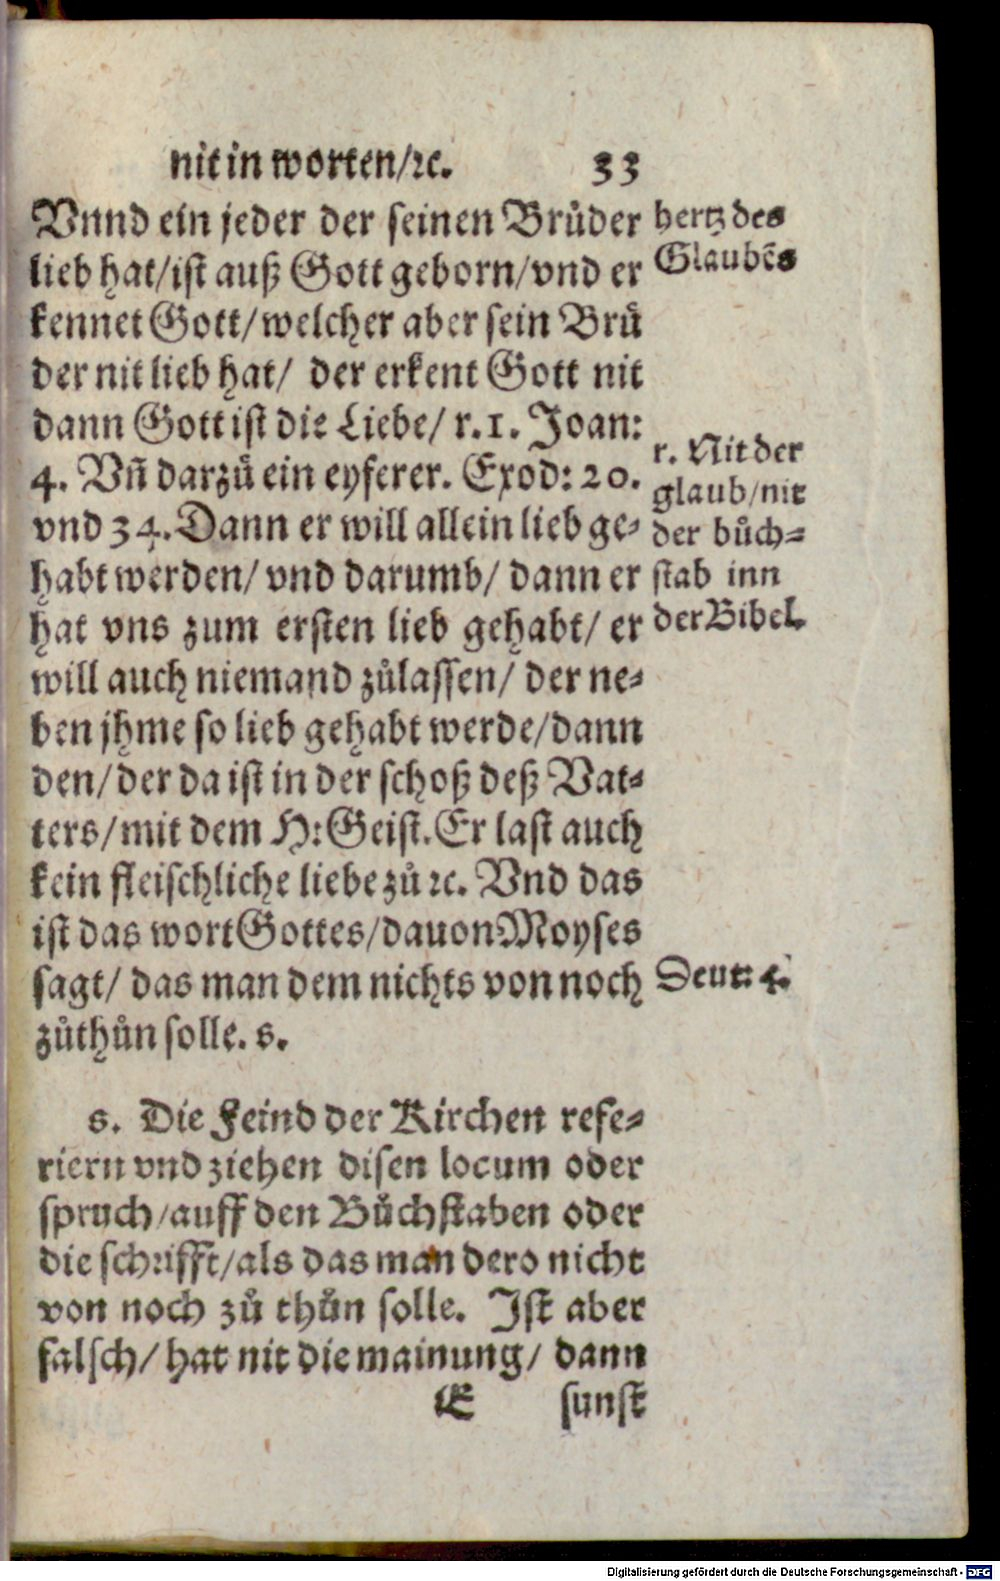 nit in worten/ꝛc. 33
Vnnd ein jeder der seinen Brůder
lieb hat/ist auß Gott geborn/vnd er
kennet Gott/welcher aber sein Brů
der nit lieb hat/ der erkent Gott nit
dann Gott ist die Liebe/ r.1. Joan:
4. Vñ darzů ein eyferer. Exod: 20.
vnd 34. Dann er will allein lieb ge-
habt werden/ vnd darumb/ dann er
hat vns zum ersten lieb gehabt/ er
will auch niemand zůlassen/ der ne-
ben jhme so lieb gehabt werde/dann
den/der da ist in der schoß deß Vat-
ters/mit dem H: Geist. Er last auch
kein fleischliche liebe zů ꝛc. Vnd das
ist das wort Gottes/dauon Moyses
sagt/ das man dem nichts von noch
zůthůn solle. s.
hertz des
Glaubẽs
r. Nit der
glaub/nit
der bůch-
stab inn
der Bibel.
Deut: 4.
s. Die Feind der Kirchen refe-
riern vnd ziehen disen locum oder
spruch/auff den Bůchstaben oder
die schrifft/als das man dero nicht
von noch zů thůn solle. Ist aber
falsch/ hat nit die mainung/ dann
E sunst
Digitalisierung gefördert durch die Deutsche Forschungsgemeinschaft - DFG